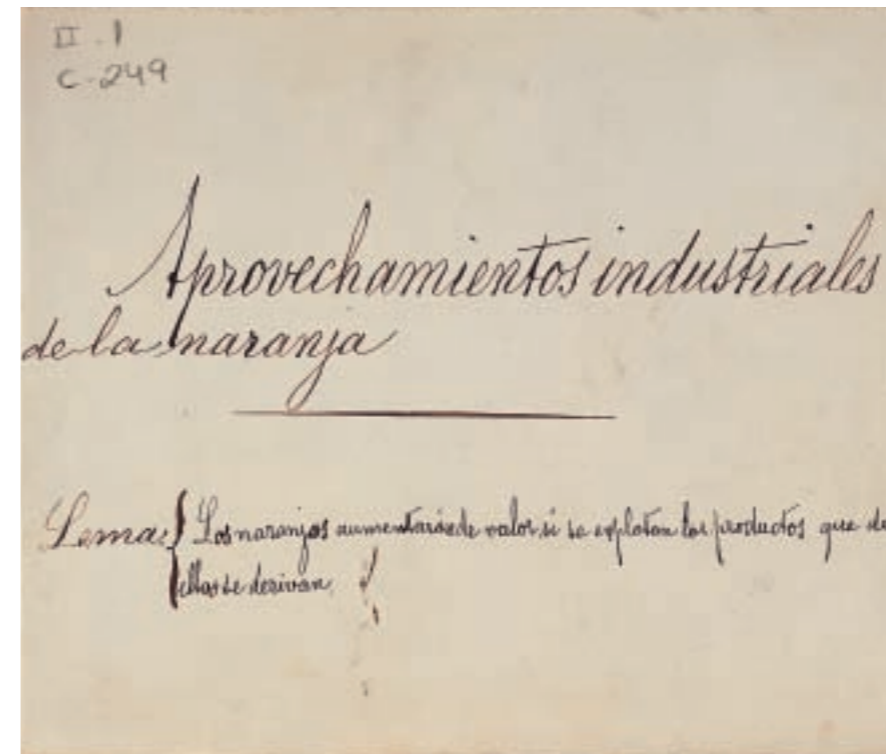 II.1
C-249
Aprovechamientos industriales
de la naranja
Lema: Los naranjos aumentarán de valor si se explotan los productos que de
ellos se derivan